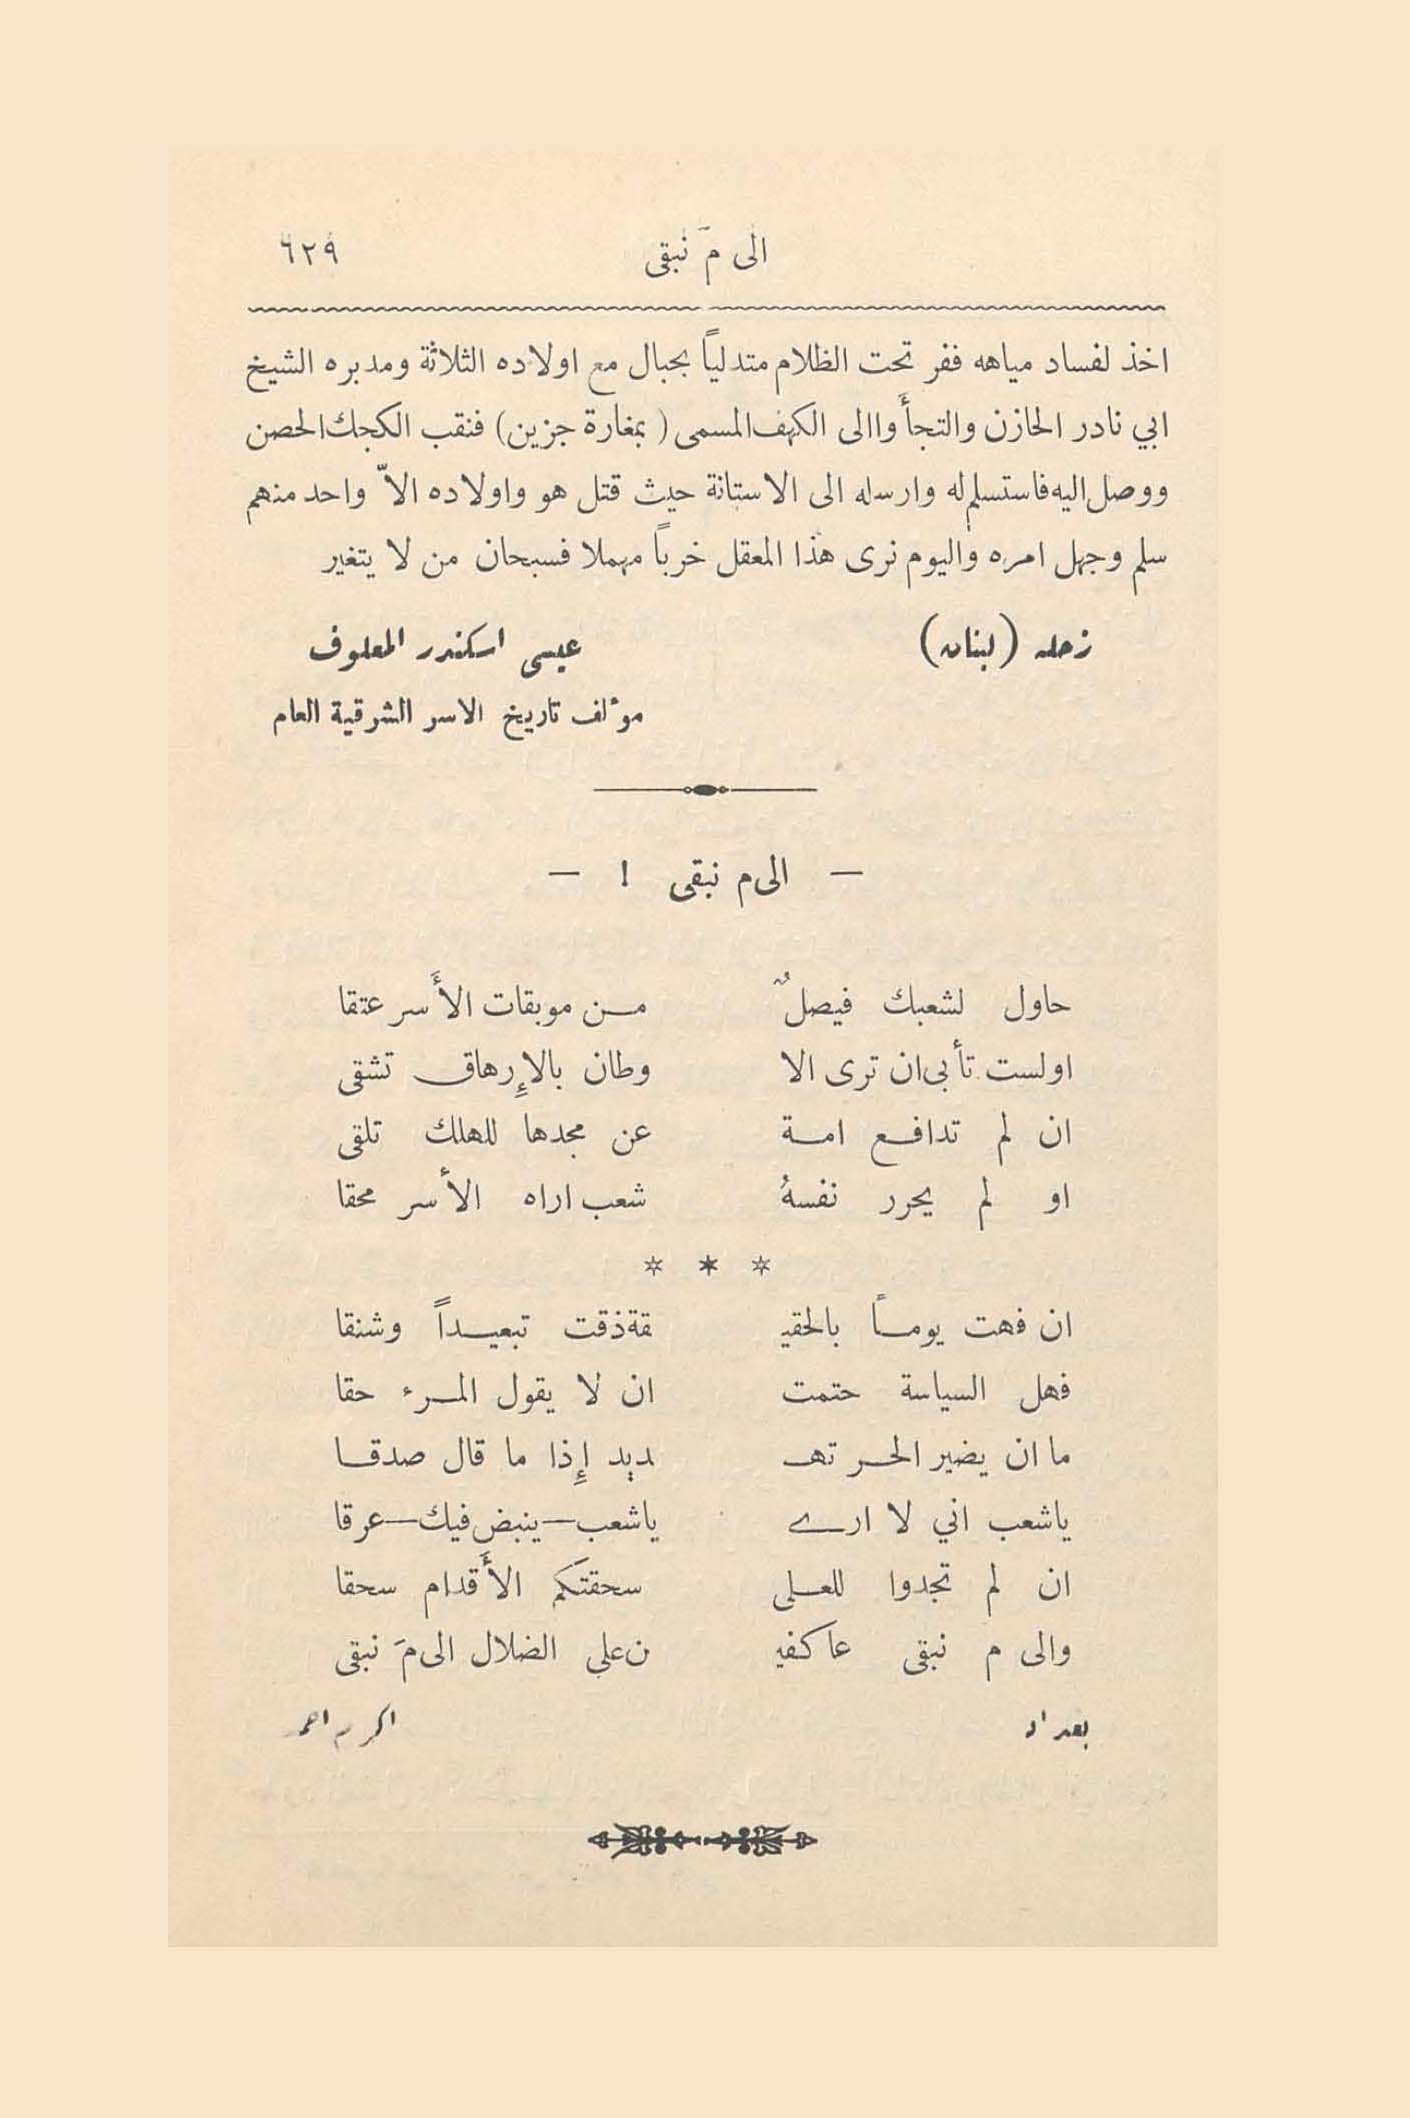 الى مَ نبقى ٦٢٩
اخذ لفساد مياهه ففر تحت الظلام متدلياً بحبال مع اولاده الثلاثة ومدبره الشيخ
ابي نادر الخازن والتجأوا الى الكهف المسمى ( بمغارة جزين) فنقب الكجك الحصن
ووصل اليه فاستسلم له وارسله الى الاستانة حيث قتل هو واولاده الاّ واحد منهم
سلم وجهل امره واليوم نرى هذا المعقل خرباً مهملا فسبحان من لا يتغير
زحله (لبنان) عيسى اسكندر المعلوف
مؤلف تاريخ الاسر الشرقية العام
— الى م نبقى ! —
حاول لشعبك فيصلٌ من موبقات الأسر عتقا
اولست تأبى ان ترى الا وطان بالإرهاق تشقى
ان لم تدافع امة عن مجدها للهلك تلقى
او لم يحرر نفسهُ شعب اراه الأسر محقا
* * *
ان فهت يوماً بالحقيـ قة ذقت تبعيداً وشنقا
فهل السياسة حتمت ان لا يقول المرء حقا
ما ان يضير الحر تهـ ديد إذا ما قال صدقا
ياشعب اني لا ارى ياشعب—ينبض فيك—عرقا
ان لم تجدوا للعلى سحقتكم الأقدام سحقا
والى م نبقى عاكفيـ ن على الضلال الى مَ نبقى
بغداد اكرم احمد